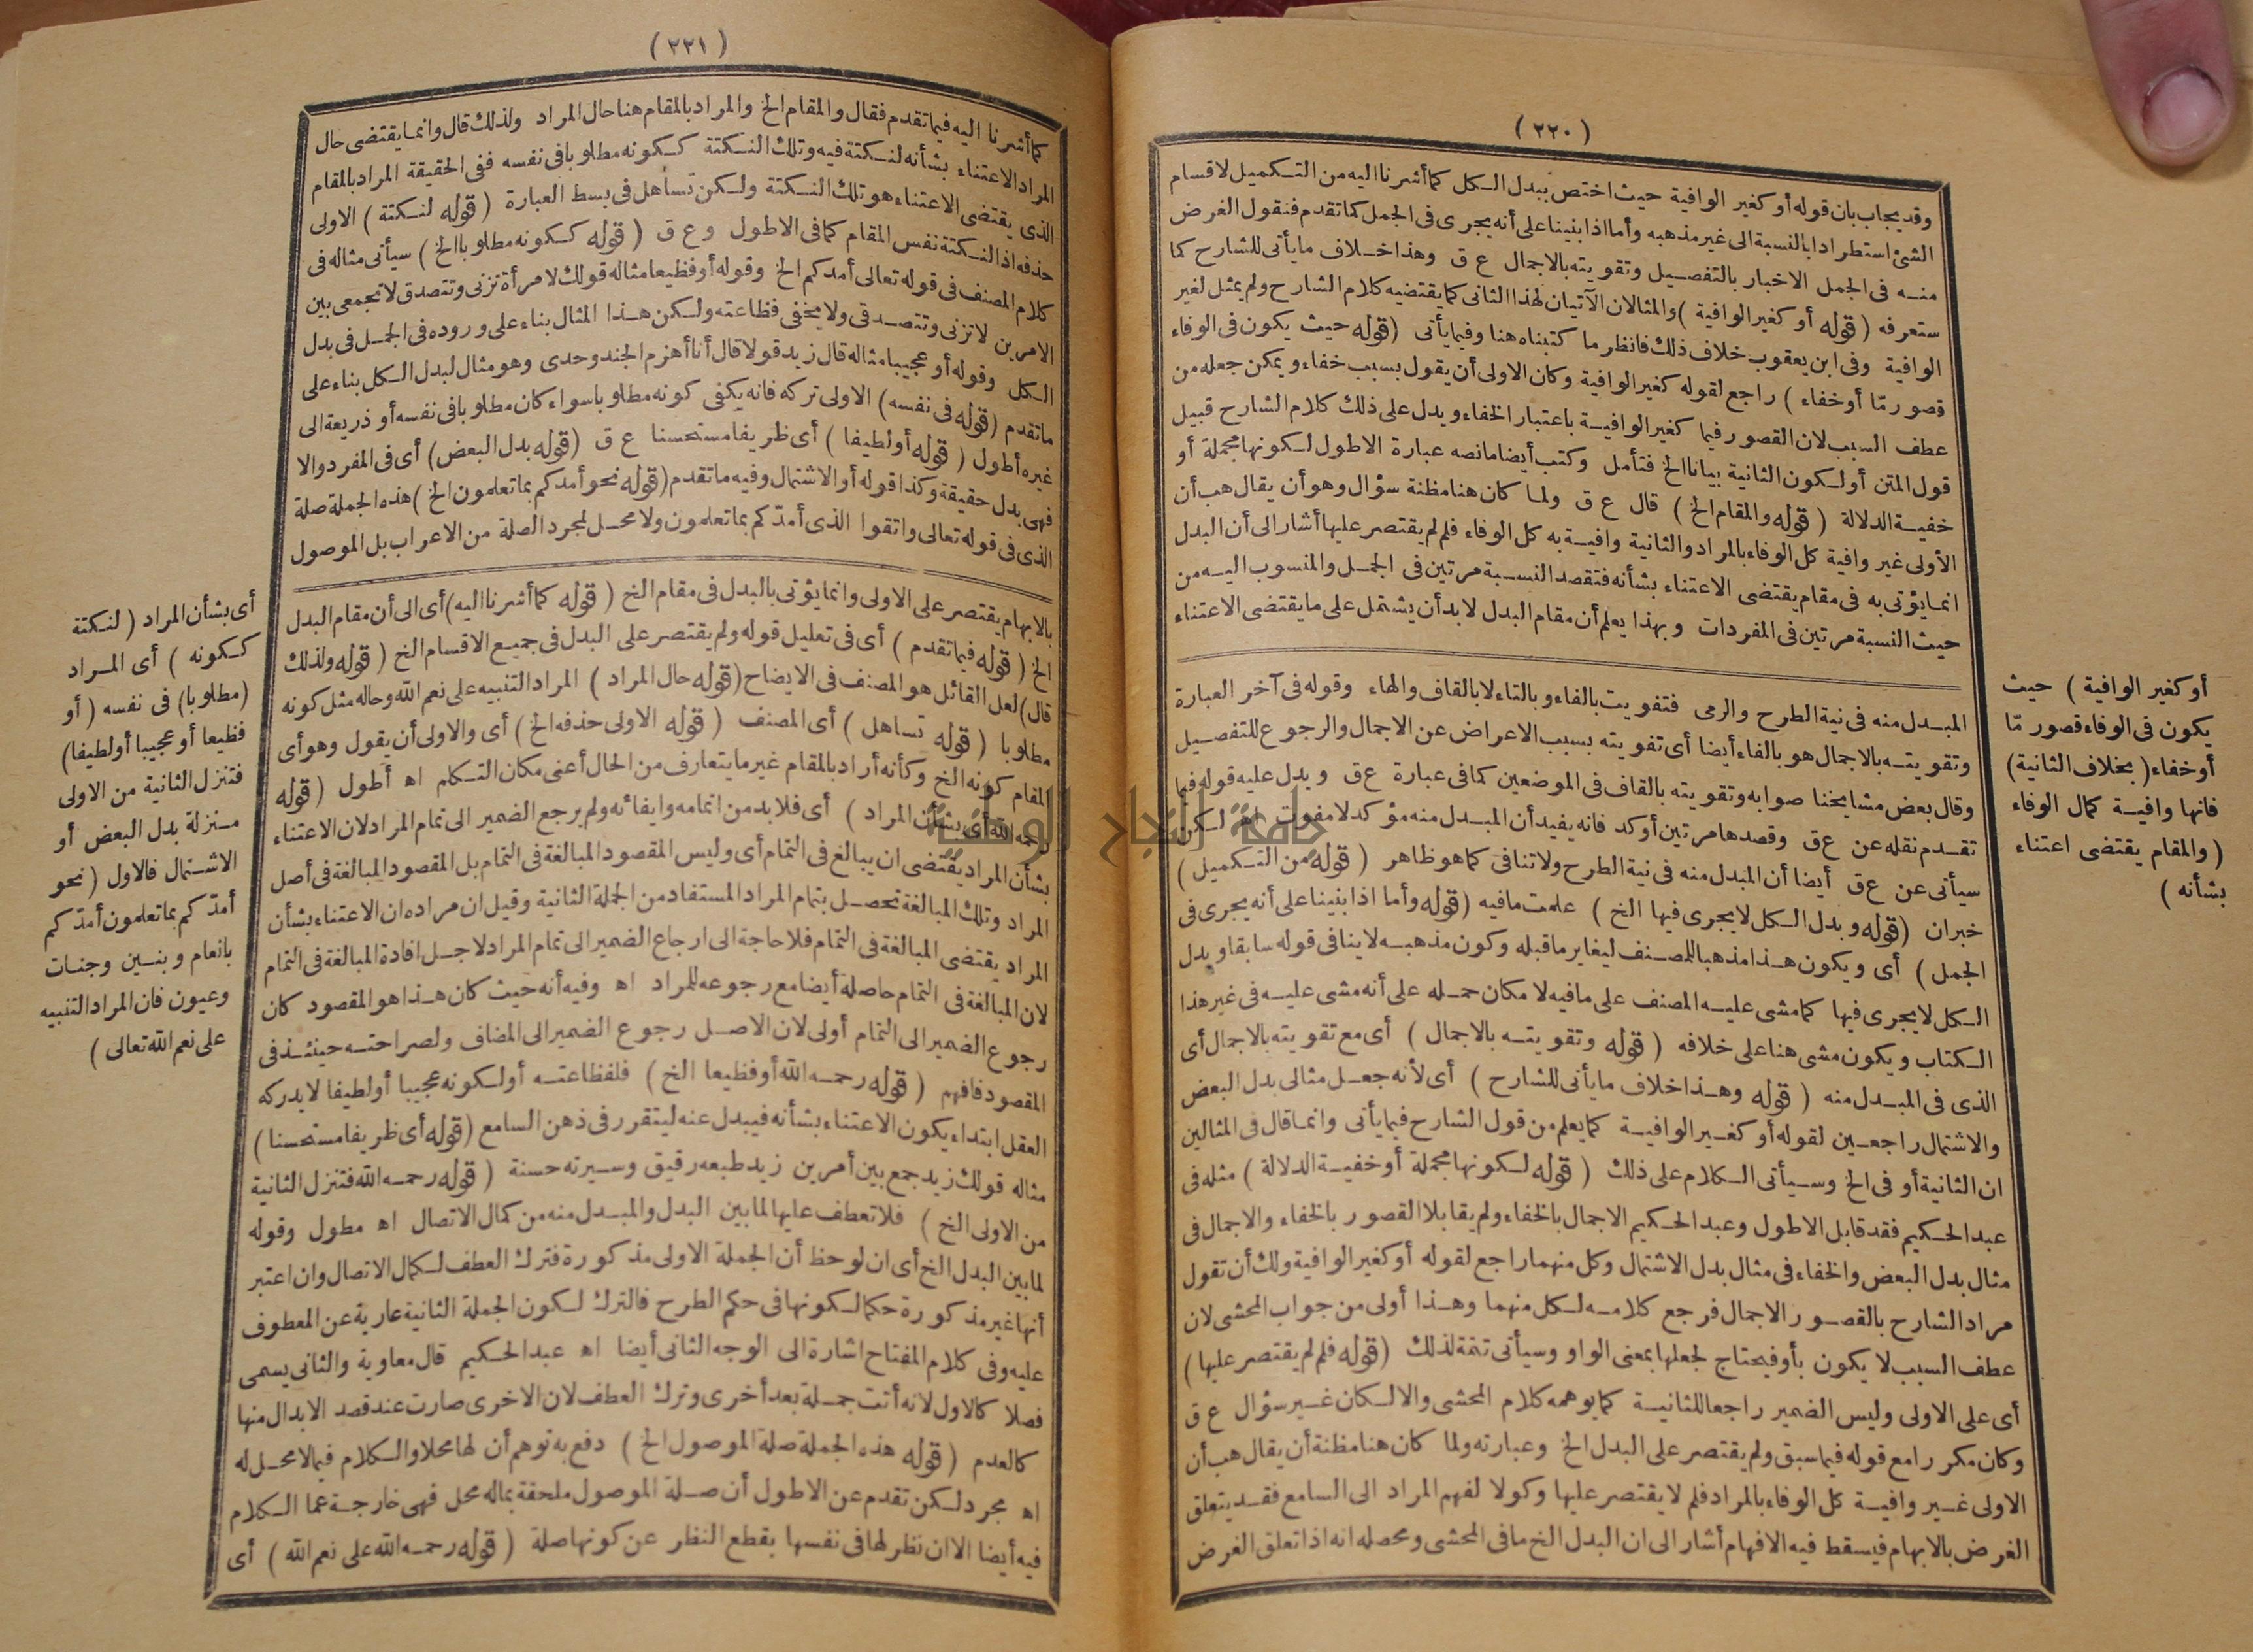 (٢٢٠)
وقد يجاب بان قوله أو كغير الوافية حيث اختص ببدل الكل كما أشرنا اليه من التكميل لاقسام
الشئ استطرادا بالنسبة الى غير مذهبه وأما اذا بنينا على أنه يجرى فى الجمل كما تقدم فنقول الغرض
منه فى الجمل الاخبار بالتفصيل وتقويته بالاجمال ع ق وهذا خلاف ما يأتى للشارح كما
ستعرفه (قوله أو كغير الوافية) والمثالان الآتيان لهذا الثانى كما يقتضيه كلام الشارح ولم يمثل لغير
الوافية وفى ابن يعقوب خلاف ذلك فانظر ما كتبناه هنا وفيما يأتى (قوله حيث يكون فى الوفاء
قصور مّا أو خفاء) راجع لقوله كغير الوافية وكان الاولى أن يقول بسبب خفاء ويمكن جعله من
عطف السبب لان القصور فيما كغير الوافية باعتبار الخفاء ويدل على ذلك كلام الشارح قبيل
قول المتن أو لكون الثانية بيانا الخ فتأمل وكتب أيضا مانصه عبارة الاطول لكونها مجملة أو
خفية الدلالة (قوله والمقام الخ) قال ع ق ولما كان هنا مظنة سؤال وهو أن يقال هب أن
الأولى غير وافية كل الوفاء بالمراد والثانية وافية به كل الوفاء فلم لم يقتصر عليها أشار الى أن البدل
انما يؤتى به فى مقام يقتضى الاعتناء بشأنه فتقصد النسبة مرتين فى الجمل والمنسوب اليه من
حيث النسبة مرتين فى المفردات وبهذا يعلم أن مقام البدل لا بد أن يشتمل على ما يقتضى الاعتناء
المبدل منه فى نية الطرح والرمى فتفويت بالفاء وبالتاء لا بالقاف والهاء وقوله فى آخر العبارة
وتقويته بالاجمال هو بالفاء أيضا أى تفويته بسبب الاعراض عن الاجمال والرجوع للتفصيل
وقال بعض مشايخنا صوابه وتقويته بالقاف فى الموضعين كما فى عبارة ع ق ويدل عليه قوله فيما
تقدم نقله عن ع ق وقصدها مرتين أوكد فانه يفيد أن المبدل منه مؤكد لا مفوت اه لكن
سيأتى عن ع ق أيضا أن المبدل منه فى نية الطرح ولا تنافى كما هو ظاهر (قوله من التكميل)
خبران (قوله وبدل الكل لا يجرى فيها الخ) علمت مافيه (قوله وأما اذا بنينا على أنه يجرى فى
الجمل) أى ويكون هذا مذهبا للمصنف ليغاير ما قبله وكون مذهبه لاينافى قوله سابقا وبدل
الكل لا يجرى فيها كما مشى عليه المصنف على مافيه لا مكان حمله على أنه مشى عليه فى غير هذا
الكتاب ويكون مشى هنا على خلافه (قوله وتقويته بالاجمال) أى مع تقويته بالاجمال أى
الذى فى المبدل منه (قوله وهذا خلاف ما يأتى للشارح) أى لأنه جعل مثالى بدل البعض
والاشتمال راجعين لقوله أو كغير الوافية كما يعلم من قول الشارح فيما يأتى وانما قال فى المثالين
ان الثانية أو فى الخ وسيأتى الكلام على ذلك (قوله لكونها مجملة أو خفية الدلالة) مثله فى
عبد الحكيم فقد قابل الاطول وعبد الحكيم الاجمال بالخفاء ولم يقابلا القصور بالخفاء والاجمال فى
مثال بدل البعض والخفاء فى مثال بدل الاشتمال وكل منهما راجع لقوله أو كغير الوافية ولك أن تقول
مراد الشارح بالقصور الاجمال فرجع كلامه لكل منهما وهذا أولى من جواب المحشى لان
عطف السبب لا يكون بأو فيحتاج لجعلها بمعنى الواو وسيأتى تتمة لذلك (قوله فلم لم يقتصر عليها)
أى على الاولى وليس الضمير راجعا للثانية كما يوهمه كلام المحشى والا لكان غير سؤال ع ق
وكان مكررا مع قوله فيما سبق ولم يقتصر على البدل الخ وعبارته ولما كان هنا مظنة أن يقال هب أن
الاولى غير وافية كل الوفاء بالمراد فلم لا يقتصر عليها وكولا لفهم المراد الى السامع فقد يتعلق
الغرض بالابهام فيسقط فيه الافهام أشار الى ان البدل الخ ما فى المحشى ومحصله انه اذا تعلق الغرض
أو كغير الوافية) حيث
يكون فى الوفاء قصور مّا
أو خفاء (بخلاف الثانية)
فانها وافية كمال الوفاء
(والمقام يقتضى اعتناء
بشأنه)
(٢٢١)
كما أشرنا اليه فيما تقدم فقال والمقام الخ والمراد بالمقام هنا حال المراد ولذلك قال وانما يقتضى حال
المراد الاعتناء بشأنه لنكتة فيه وتلك النكتة ككونه مطلوبا فى نفسه ففى الحقيقة المراد بالمقام
الذى يقتضى الاعتناء هو تلك النكتة ولكن تساهل فى بسط العبارة (قوله لنكتة) الاولى
حذفه اذ النكتة نفس المقام كما فى الاطول و ع ق (قوله ككونه مطلوبا الخ) سيأتى مثاله فى
كلام المصنف فى قوله تعالى أمدكم الخ وقوله أو فظيعا مثاله قولك لامرأة تزنى وتتصدق لا تجمعى بين
الامرين لا تزنى وتتصدقى ولا يخفى فظاعته ولكن هذا المثال بناء على وروده فى الجمل فى بدل
الكل وقوله أو عجيبا مثاله قال زيد قولا قال أنا أهزم الجند وحدى وهو مثال لبدل الكل بناء على
ماتقدم (قوله فى نفسه) الاولى تركه فانه يكفى كونه مطلوبا سواء كان مطلوبا فى نفسه أو ذريعة الى
غيره أطول (قوله أو لطيفا) أى ظريفا مستحسنا ع ق (قوله بدل البعض) أى فى المفرد والا
فهى بدل حقيقة وكذا قوله أو الاشتمال وفيه ماتقدم (قوله نحو أمدكم بما تعلمون الخ) هذه الجملة صلة
الذى فى قوله تعالى واتقوا الذى أمدّكم بما تعلمون ولا محل لمجرد الصلة من الاعراب بل الموصول
بالابهام يقتصر على الاولى وانما يؤتى بالبدل فى مقام الخ (قوله كما أشرنا اليه) أى الى أن مقام البدل
الخ (قوله فيما تقدم) أى فى تعليل قوله ولم يقتصر على البدل فى جميع الاقسام الخ (قوله ولذلك
قال) لعل القائل هو المصنف فى الايضاح (قوله حال المراد) المراد التنبيه على نعم الله وحاله مثل كونه
مطلوبا (قوله تساهل) أى المصنف (قوله الاولى حذفه الخ) أى والاولى أن يقول وهو أى
المقام كونه الخ وكأنه أراد بالمقام غير ما يتعارف من الحال أعنى مكان التكلم اه أطول (قوله
رحمه الله أى بشأن المراد) أى فلابد من اتمامه وايفائه ولم يرجع الضمير الى تمام المراد لان الاعتناء
بشأن المراد يقتضى ان يبالغ فى التمام أى وليس المقصود المبالغة فى التمام بل المقصود المبالغة فى أصل
المراد وتلك المبالغة تحصل بتمام المراد المستفاد من الجملة الثانية وقيل ان مراده ان الاعتناء بشأن
المراد يقتضى المبالغة فى التمام فلا حاجة الى ارجاع الضمير الى تمام المراد لاجل افادة المبالغة فى التمام
لان المبالغة فى التمام حاصلة أيضا مع رجوعه للمراد اه وفيه أنه حيث كان هذا هو المقصود كان
رجوع الضمير الى التمام أولى لان الاصل رجوع الضمير الى المضاف ولصراحته حينئذ فى
المقصود فافهم (قوله رحمه الله أو فظيعا الخ) فلفظاعته أو لكونه عجيبا أو لطيفا لا يدركه
العقل ابتداء يكون الاعتناء بشأنه فيبدل عنه ليتقرر فى ذهن السامع (قوله أى ظريفا مستحسنا)
مثاله قولك زيد جمع بين أمرين زيد طبعه رقيق وسيرته حسنة (قوله رحمه الله فتنزل الثانية
من الاولى الخ) فلا تعطف عليها لما بين البدل والمبدل منه من كمال الاتصال اه مطول وقوله
لما بين البدل الخ أى ان لوحظ أن الجملة الاولى مذكورة فترك العطف لكمال الاتصال وان اعتبر
أنها غير مذكورة حكما لكونها فى حكم الطرح فالترك لكون الجملة الثانية عارية عن المعطوف
عليه وفى كلام المفتاح اشارة الى الوجه الثانى أيضا اه عبد الحكيم قال معاوية والثانى يسمى
فصلا كالاول لانه أتت جملة بعد أخرى وترك العطف لان الاخرى صارت عند قصد الابدال منها
كالعدم (قوله هذه الجملة صلة الموصول الخ) دفع به توهم أن لها محلا والكلام فيما لا محل له
اه مجرد لكن تقدم عن الاطول أن صلة الموصول ملحقة بماله محل فهى خارجة عما الكلام
فيه أيضا الا ان نظر لها فى نفسها بقطع النظر عن كونها صلة (قوله رحمه الله على نعم الله) أى
أى بشأن المراد (لنكتة
ككونه) أى المراد
(مطلوبا) فى نفسه (أو
فظيعا أو عجيبا أو لطيفا)
فتنزل الثانية من الاولى
منزلة بدل البعض أو
الاشتمال فالاول (نحو
أمدّكم بما تعلمون أمدّكم
بانعام وبنين وجنات
وعيون فان المراد التنبيه
على نعم الله تعالى)
جامعة النجاح الوطنية